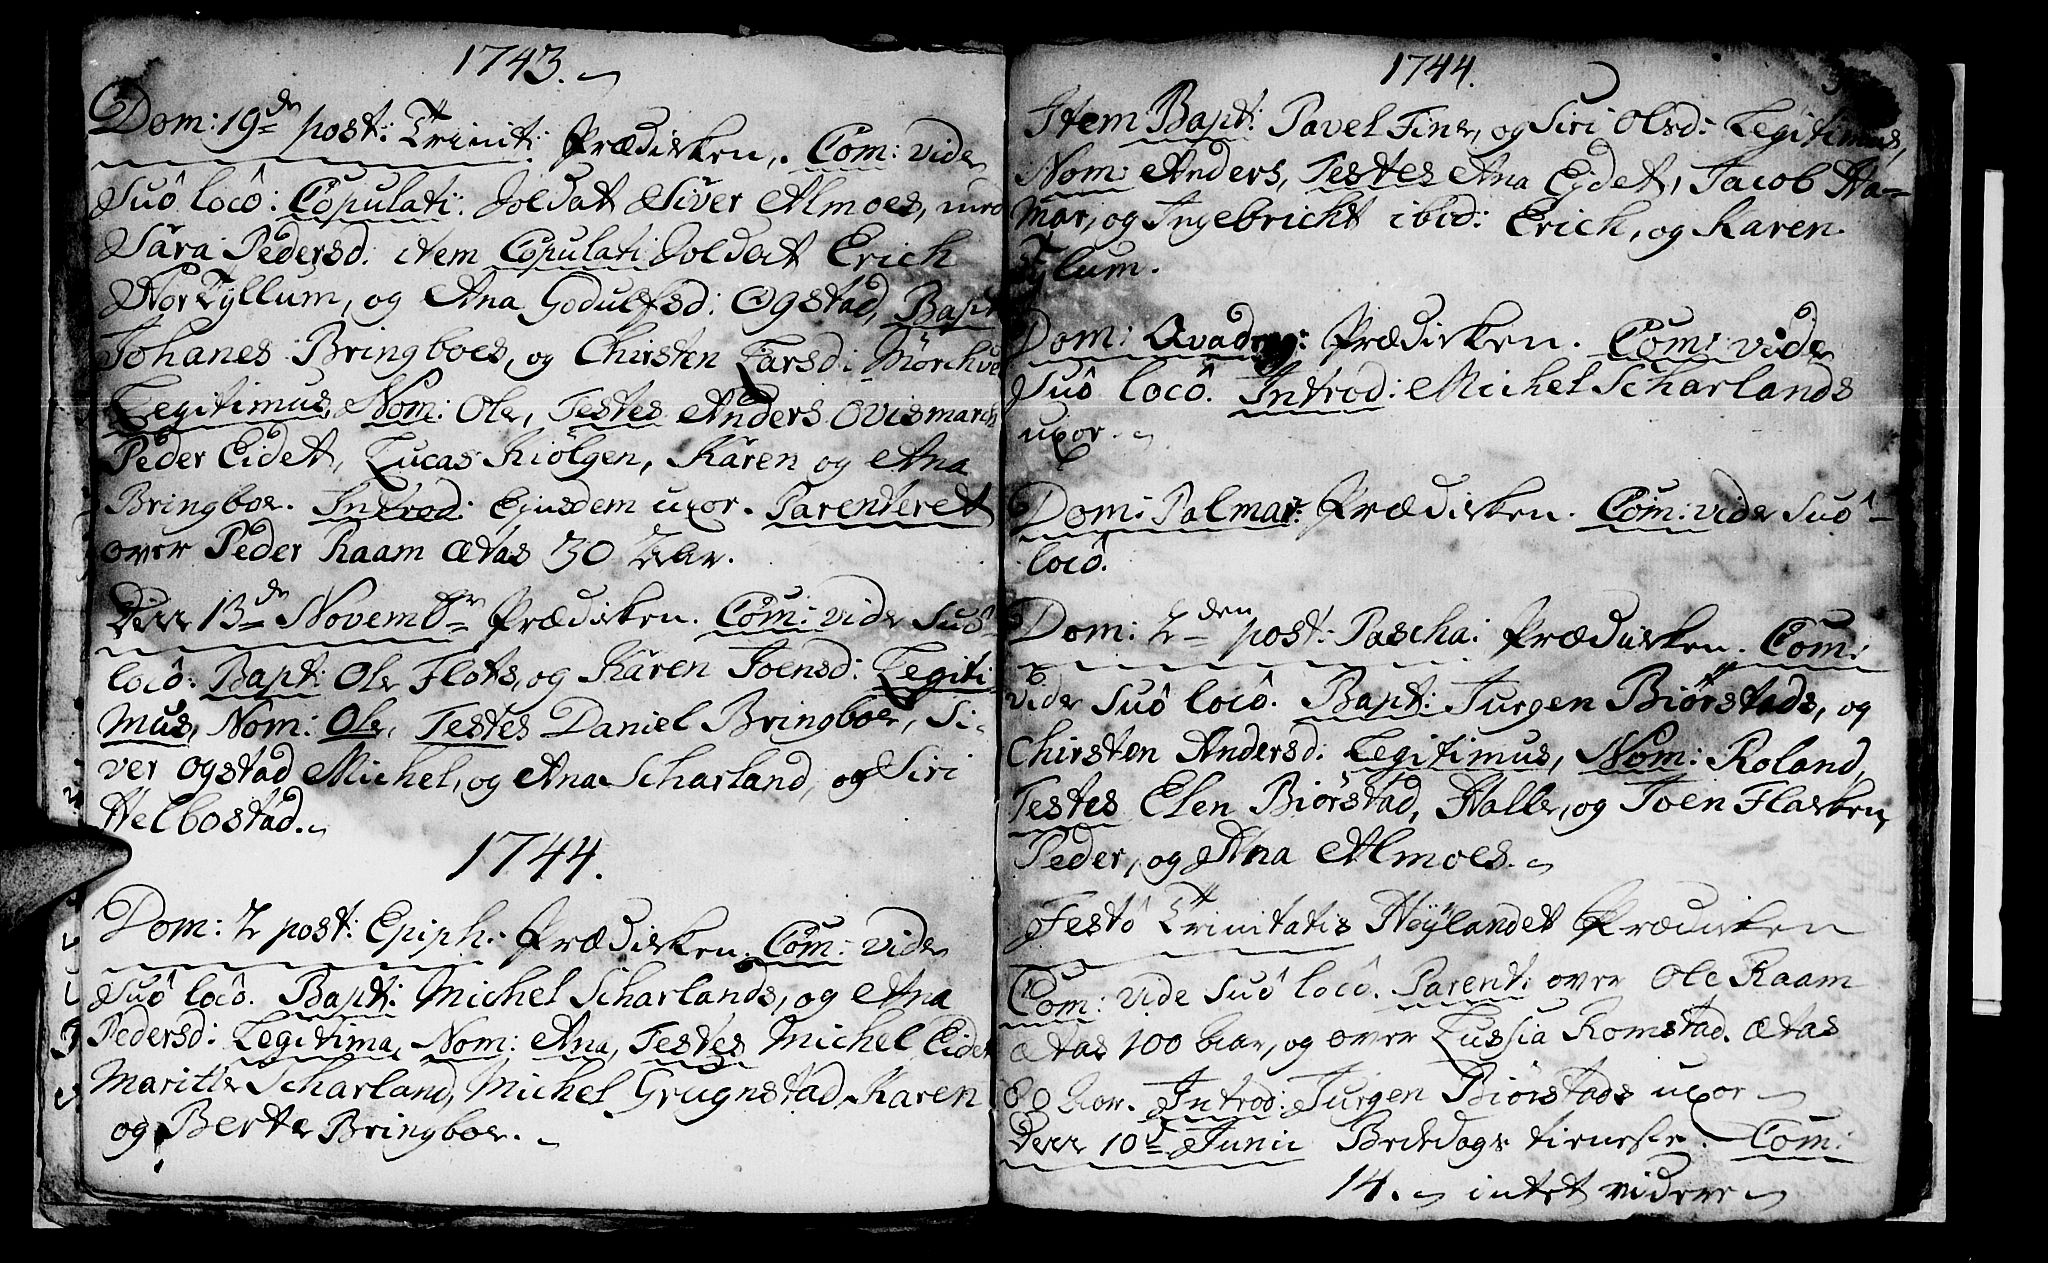 1743.
Dom: 19de post: Trinit: Prædicken. Com: vide
Suô locô: Copulati: Soldat Siver Almoes,
Sara Pedersd: item Copulati Soldat Erich
Nor Tyllum, og Ana Godulfsd: Ogstad, Bapt
Johanes Bringboes, og Chirsten Larsd: Mörchve
Legitimus, Nom: Ole, Testes Anders Ovismarch
Peder Eidet, Lucas Kiölgen, Karen og Ana
Bringboe. Introd: Ejusdem uxor. Parenteret
over Peder Raam ætas 30 Aar.
Den 13de Novembr Prædicken. Com: vide Suô
locô: Bapt: Ole Flots, og Karen Joensd: Legiti
mus, Nom: Ole, Testes Daniel Bringboe, Si-
ver Ogstad Michel, og Ana Scharland, og Siri
Helbostad.
1744.
Dom: 2 post: Epiph: Prædicken. Com: vide
Suô locô. Bapt: Michel Scharlands, og Ana
Pedersd: Legitima, Nom: Ana, Testes Michel Eidet
Maritte Scharland, Michel Grugnstad, Karen
og Berte Bringboe.
1744.
Item Bapt: Pavel Fine, og Siri Olsd: Legitimus,
Nom: Anders, Testes Ana Ejdet, Jacob Ha-
mar, og Ingebricht ibid: Erich, og Karen
Tylum.
Dom: Qvadrag: Prædicken. Com: vide
Suô locô. Introd: Michel Scharlands
uxor.
Dom: Palmar: Prædicken. Com: vide Suô
locô.
Dom: 2den post: Pascha: Prædicken. Com:
vide Suô locô. Bapt: Jurgen Biörstads, og
Chirsten Andersd: Legitimus, Nom: Roland,
Testes Elen Biörstad, Halle, og Joen Flasken,
Peder, og Ana Almoes.
Festô Trinitatis Höylandet Prædicken
Com: vide Suô locô. Parent: over Ole Raam
ætas 100 Aar, og over Lussia Romstad. ætas
80 Aar. Introd: Jurgen Biörstads uxor
Den 10de Junii Bededags tieneste. Com:
14. intet videre